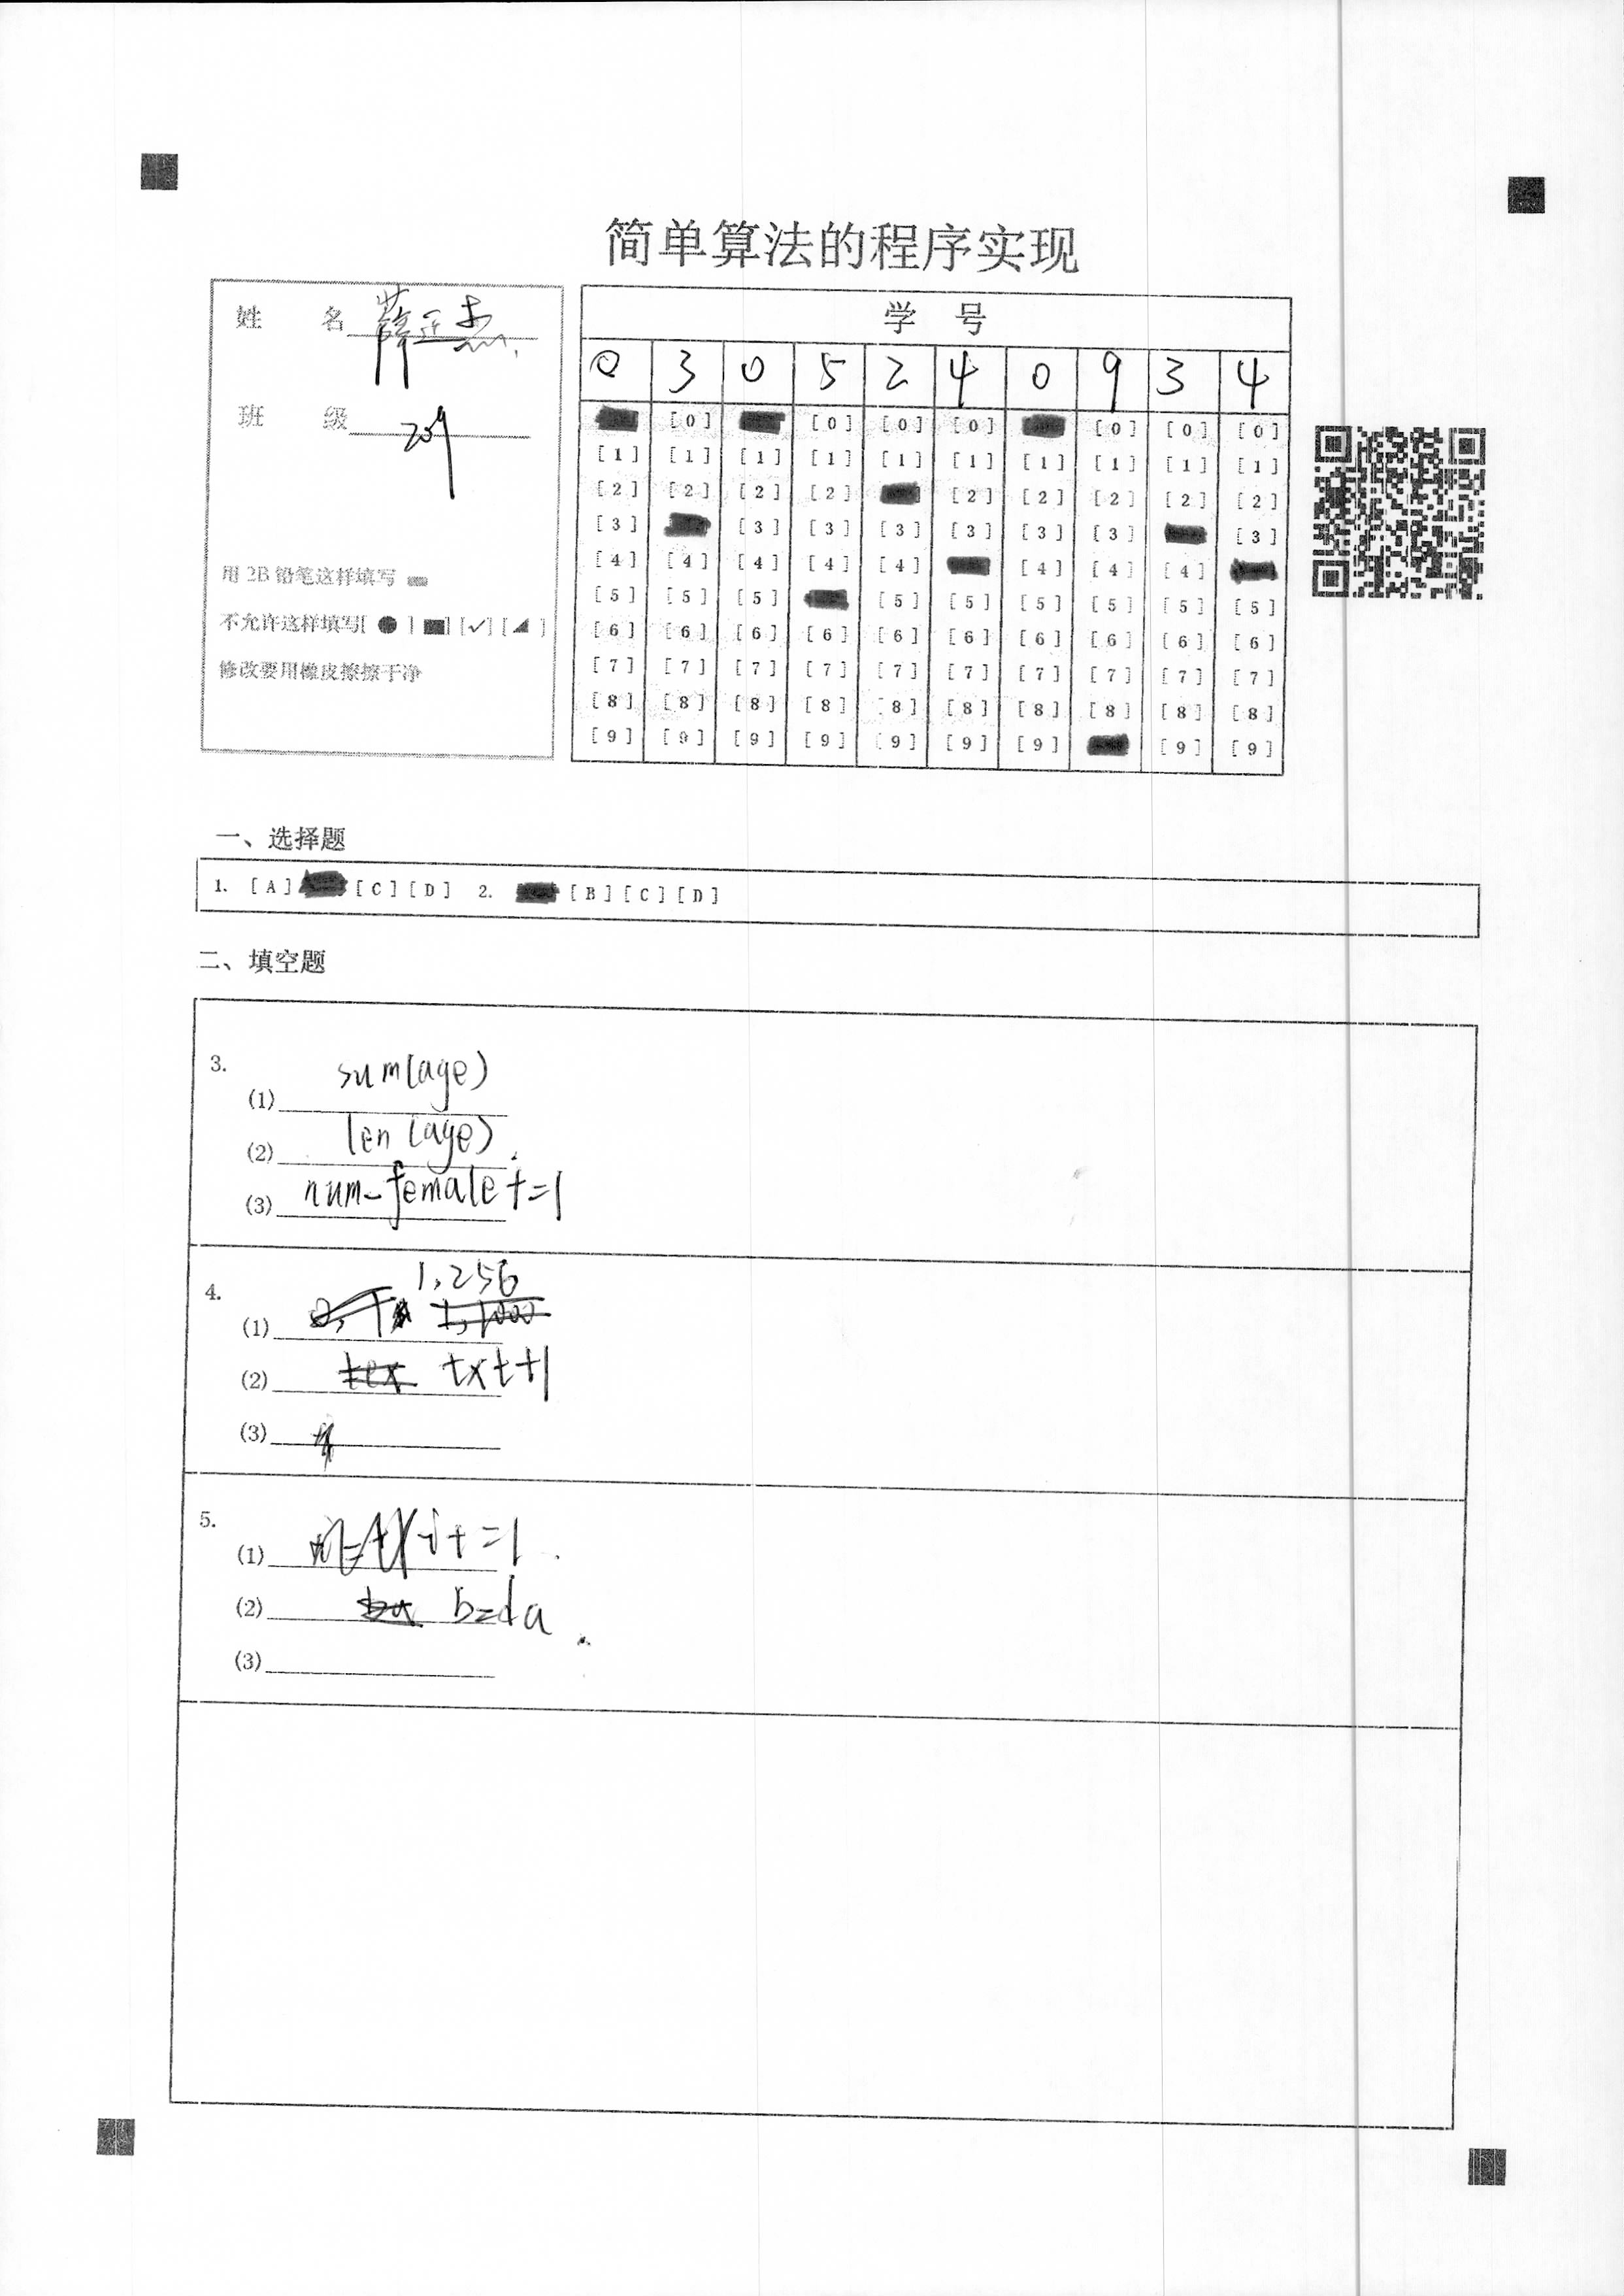 简单算法的程序实现
姓 名 薛正杰
班 级 209
用 2B 铅笔这样填写
不允许这样填写[ ● ] [■] [✓] [◢ ]
修改要用橡皮擦擦干净
学 号
0 3 0 5 2 4 0 9 3 4
[0] [0] [0] [0] [0] [0] [0]
[1] [1] [1] [1] [1] [1] [1] [1] [1] [1]
[2] [2] [2] [2] [2] [2] [2] [2] [2]
[3] [3] [3] [3] [3] [3] [3] [3]
[4] [4] [4] [4] [4] [4] [4] [4]
[5] [5] [5] [5] [5] [5] [5] [5] [5]
[6] [6] [6] [6] [6] [6] [6] [6] [6] [6]
[7] [7] [7] [7] [7] [7] [7] [7] [7] [7]
[8] [8] [8] [8] [8] [8] [8] [8] [8] [8]
[9] [9] [9] [9] [9] [9] [9] [9] [9]
一、选择题
1. [A] [C] [D] 2. [B] [C] [D]
二、填空题
3.
(1) sum(age)
(2) len(age)
(3) num_female+=1
4.
(1) 1,256
(2) txt+1
(3)
5.
(1) i+=1
(2) b=da
(3)